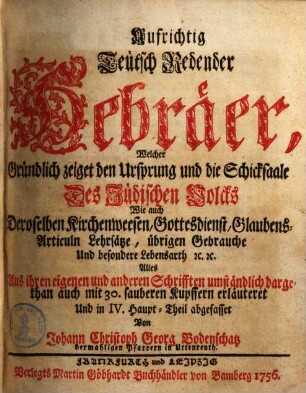 Aufrichtig
Teütsch Redender
Hebräer,
Welcher
Gründlich zeiget den Ursprung und die Schicksaale
Des Jüdischen Volcks
Wie auch
Deroselben Kirchenweesen, Gottesdienst, Glaubens-
Articuln Lehrsätze, übrigen Gebrauche
Und besondere Lebensarth ꝛc. ꝛc.
Alles
Aus ihren eigenen und anderen Schrifften umständlich darge-
than auch mit 30. sauberen Kupffern erläuteret
Und in IV. Haupt-Theil abgefasset
Von
Johann Christoph Georg Bodenschatz
dermahligen Pfarrern in Uttenreuth.
FRANKFURTH und LEIPZIG
Verlegts Martin Göbhardt Buchhändler von Bamberg 1756.